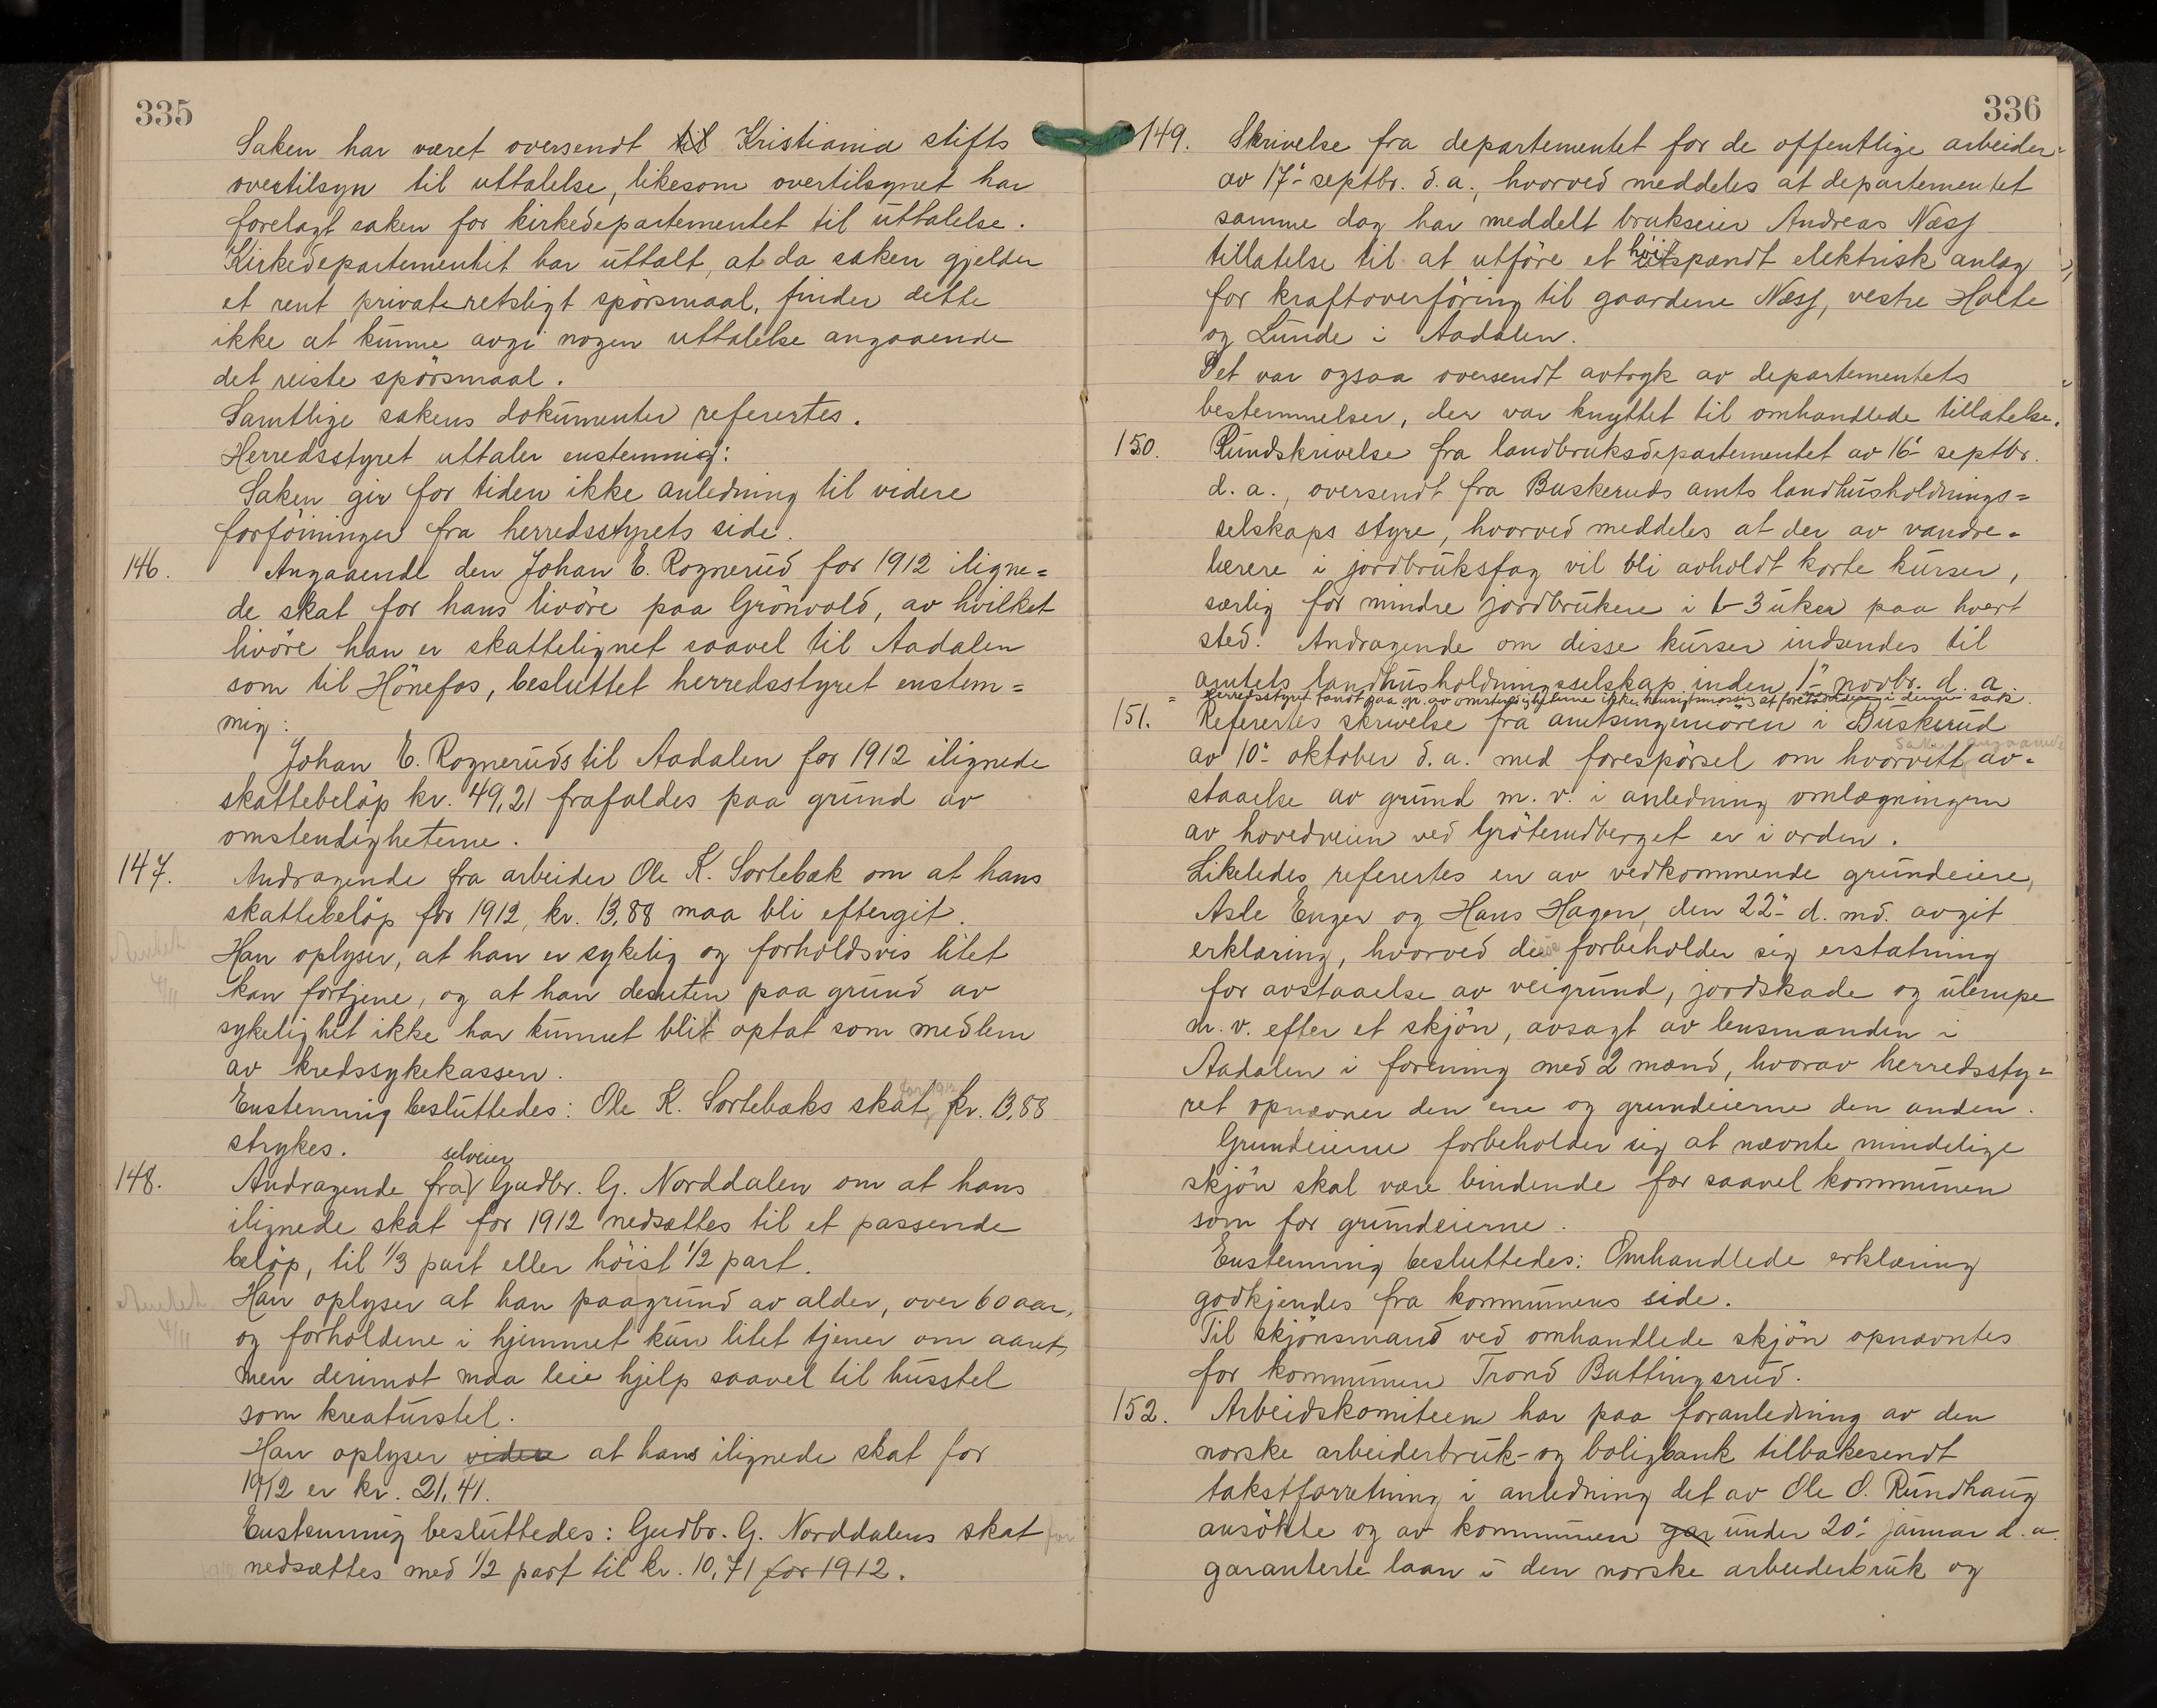 335
Saken har været oversendt til Kristiania stifts
overtilsyn til uttalelse, likesom overtilsynet har
forelagt saken for kirkedepartementet til uttalelse.
Kirkedepartementet har uttalt, at da saken gjelder
et rent privatretsligt spörsmaal, finder dette
ikke at kunne avgi nogen uttalelse angaaende
det reiste spörsmaal.
Samtlige sakens dokumenter refertes.
Herredsstyret uttaler enstemmig:
Saken gir for tiden ikke anledning til videre
forföininger fra herredsstyrets side.
146. Angaaende den Johan E. Rognerud for 1912 iligne=
de skat for hans livöre paa Grönvold, av hvilket
livöre han er skattelignet saavel til Aadalen
som til Hönefos, besluttet herredsstyret enstem=
mig:
Johan E. Rogneruds til Aadalen for 1912 ilignede
skattebelöp kr. 49,21 frafaldes paa grund av
omstendigheterne.
147. Andragende fra arbeider Ole K. Sortebæk om at hans
skattebelöp for 1912, kr. 13,88 maa bli eftergit.
Han oplyser, at han er sykelig og forholdsvis litet
kan fortjene, og at han desuten paa grund av
sykelighet ikke har kunnet blit optat som medlem
av kredssykekassen.
Enstemmig besluttedes: Ole K. Sortebæks skat for 1912 kr. 13,88
strykes.
148. Andragende fra selveier Gudbr. G. Norddalen om at hans
ilignede skat for 1912 nedsættes til et passende
belöp, til 1/3 part eller höist 1/2 part.
Han oplyser at han paa grund av alder, over 60 aar,
og forholdene i hjemmet kun litet tjener om aaret,
men derimot maa leie hjelp saavel til husstel
som kreaturstel.
Han oplyser videre at hans ilignede skat for
1912 er kr. 21,41.
Enstemmig besluttedes: Gudbr. G. Norddalens skat for
nedsættes med 1/2 part til kr. 10,71 for 1912.
336
149. Skrivelse fra departementet for de offentlige arbeider
av 17- septbr. d.a., hvorved meddeles at departementet
samme dag har meddelt brukseier Andreas Næss
tillatelse til at utföre et höitspændt elektrisk anlæg
for kraftoverföring til gaardene Næss, vestre Holte
og Lunde i Aadalen.
Det var ogsaa oversendt avtryk av departementets
bestemmelser, der var knyttet til omhandlede tillatelse.
150. Rundskrivelse fra landbruksdepartementet av 16- septbr.
d.a., oversendt fra Buskeruds amts landhusholdnings=
selskaps styre, hvorved meddeles at der av vandre=
lærere i jordbruksfag vil bli avholdt korte kurser,
særlig for mindre jordbrukere i 1-3 uker paa hvert
sted. Andragende om disse kurser indsendes til
amtets landhusholdningsselskap inden 1- novbr. d.a.
Herredsstyret fandt paa gr. av omstendighetene ikke hensigtsmæssig at foreta noget i denne sak.
151. Refertes skrivelse fra amtsingeniören i Buskerud
av 10- oktober d.a. med forespörsel om hvorvidt saken angaaende av=
staaelse av grund m.v. i anledning omlægningen
av hovedveien ved Gröterudberget er i orden.
Likeledes refertes en av vedkommende grundeiere,
Asle Enger og Hans Hagen, den 22- d. md. avgit
erklæring, hvorved disse forbeholder sig erstatning
for avstaaelse av veigrund, jordskade og ulempe
m.v. efter et skjön, avsagt av lensmanden i
Aadalen i forening med 2 mænd, hvorav herredssty=
ret opnævner den ene og grundeierne den anden.
Grundeierne forbeholder sig at nævnte mindelige
skjön skal være bindende for saavel kommunen
som for grundeierne.
Enstemmig besluttedes: Omhandlede erklæring
godkjendes fra kommunens side.
Til skjönsmand ved omhandlede skjön opnævntes
for kommunen Trond Buttingsrud.
152. Arbeidskomiteen har paa foranledning av den
norske arbeiderbruk- og boligbank tilbakesendt
takstforretning i anledning det av Ole O. Rundhaug
ansökte og av kommunen gar under 20- januar d.a.
garanterte laan i den norske arbeiderbruk og